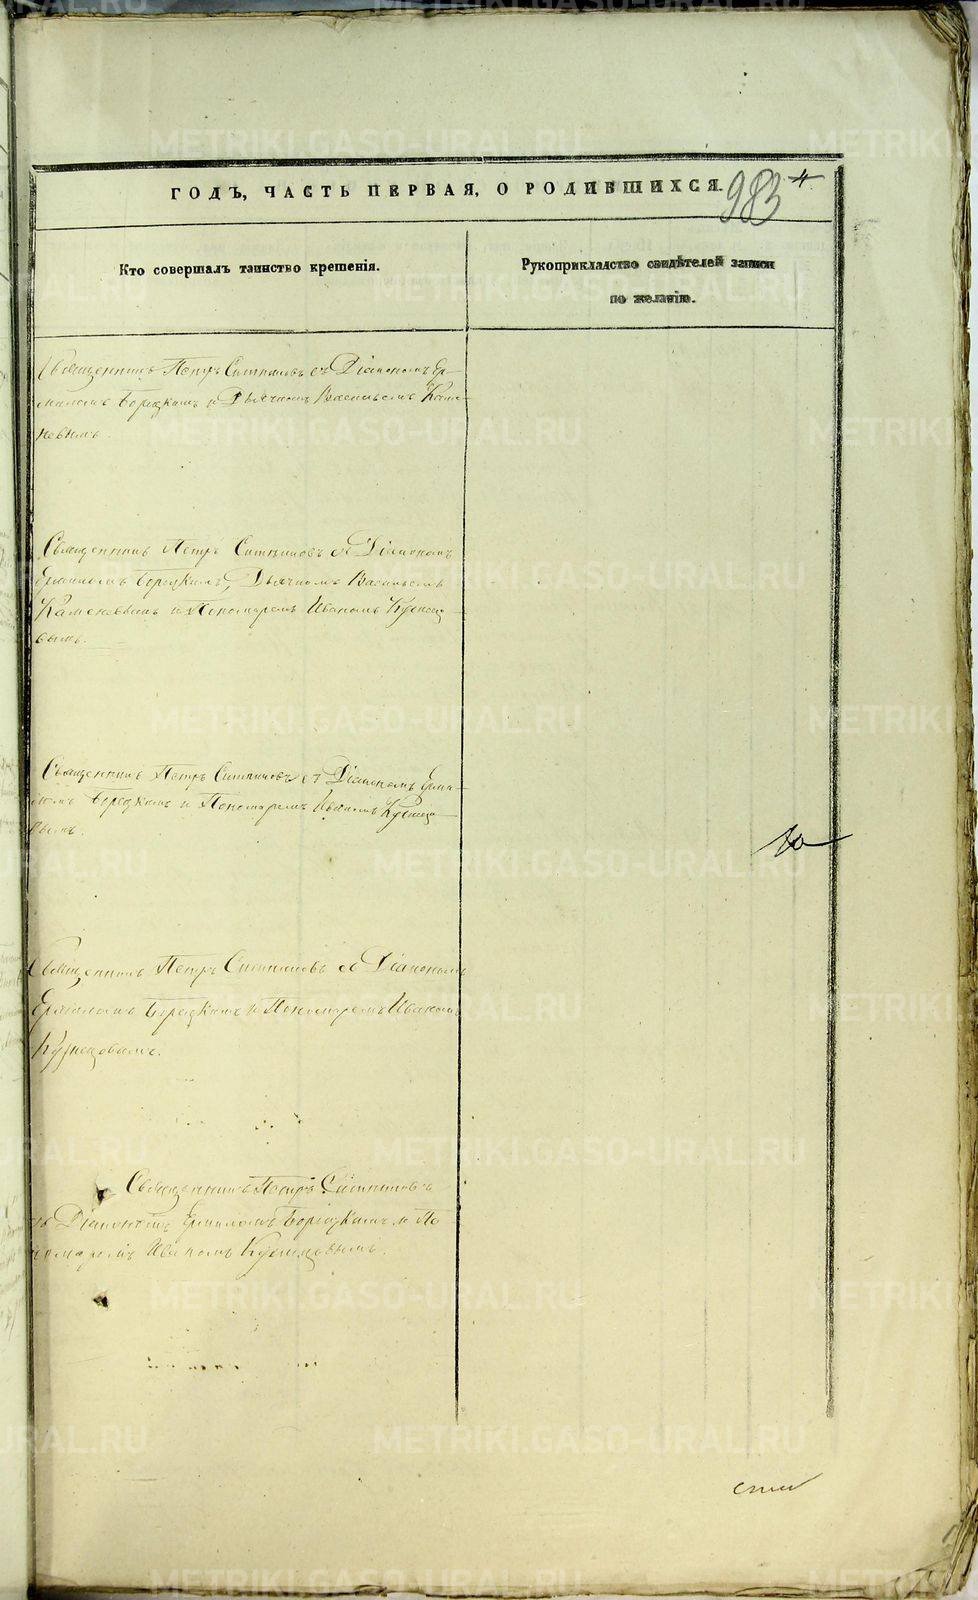 ГОДЪ, ЧАСТЬ ПЕРВАЯ, О РОДИВШИХСЯ.
983
4
Кто совершалъ таинство крещенія.
Рукоприкладство свидѣтелей записи
по желанію.
Священникъ Петръ Ситниковъ съ Діакономъ Ер-
миломъ Борецкимъ и Дьячкомъ Васильемъ Каме-
невымъ.
Священникъ Петръ Ситниковъ съ Діакономъ
Ермиломъ Борецкимъ, Дьячкомъ Васильемъ
Каменевымъ и Пономаремъ Иваномъ Кузнецо-
вымъ.
Священникъ Петръ Ситниковъ съ Діакономъ Ерми-
ломъ Борецкимъ и Пономаремъ Иваномъ Кузнецо-
вымъ.
Священникъ Петръ Ситниковъ съ Діакономъ
Ермиломъ Борецкимъ и Пономаремъ Иваномъ
Кузнецовымъ.
Священникъ Петръ Ситниковъ
съ Діакономъ Ермиломъ Борецкимъ и По
номаремъ Иваномъ Кузнецовымъ.
METRIKI.GASO-URAL.RU